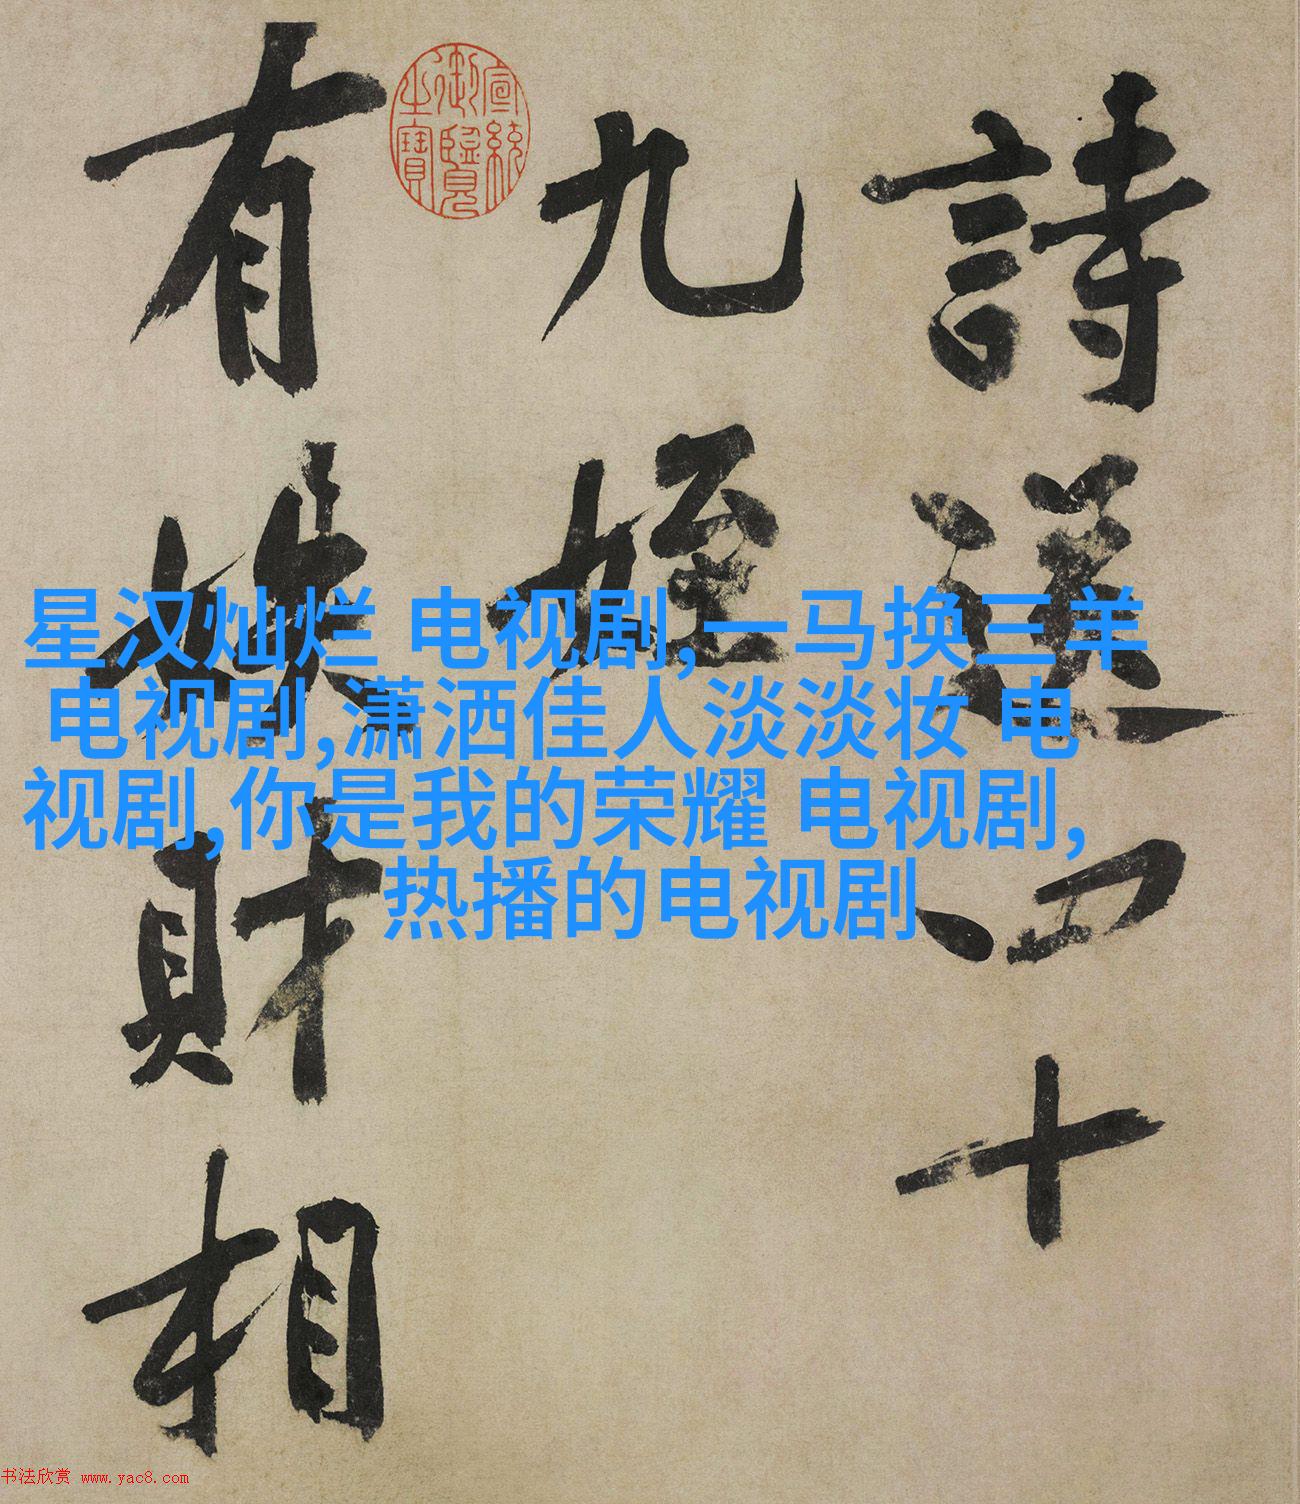 詩送四十
九姪
宣統
御覽
之寶
有財相
星汉灿烂 电视剧,一马换三羊
电视剧,潇洒佳人淡淡妆 电
视剧,你是我的荣耀 电视剧,
热播的电视剧
书法欣赏 www.yac8.com